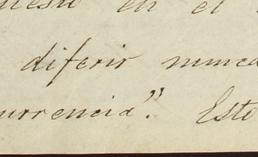 en el
diferir nunca
urrencia". Este